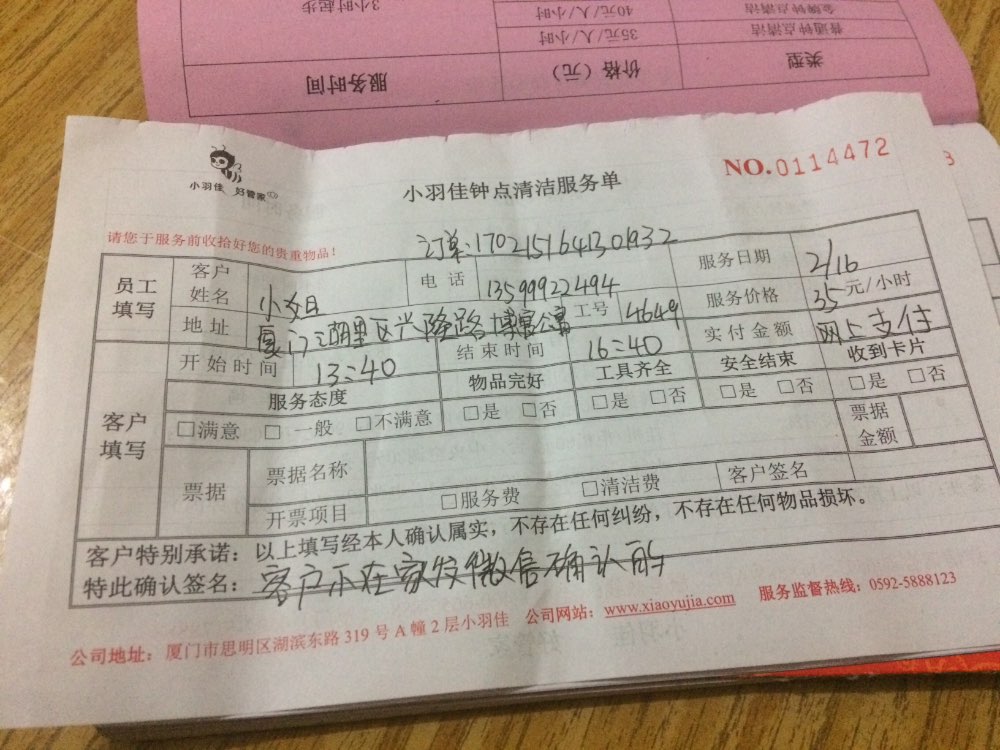 3小时起步
40元/人/小时
金牌钟点清洁
35元/人/小时
普通钟点清洁
服务时间
价格（元）
类型
小羽佳 好管家
小羽佳钟点清洁服务单
NO.0114472
请您于服务前收拾好您的贵重物品！
订单:1702151641301932
员工填写 客户姓名 小姐 电话 13599922494 服务日期 2/16
地址 厦门湖里区兴隆路博富公寓 工号 4649 服务价格 35 元/小时
开始时间 13:40 结束时间 16:40 实付金额 网上支付
客户填写 服务态度 物品完好 工具齐全 安全结束 收到卡片
□满意 □一般 □不满意 □是 □否 □是 □否 □是 □否 □是 □否
票据 票据名称 票据金额
开票项目 □服务费 □清洁费 客户签名
客户特别承诺：以上填写经本人确认属实，不存在任何纠纷，不存在任何物品损坏。
特此确认签名：客户不在家发微信确认的
公司地址：厦门市思明区湖滨东路319号A幢2层小羽佳 公司网站：www.xiaoyujia.com 服务监督热线：0592-5888123